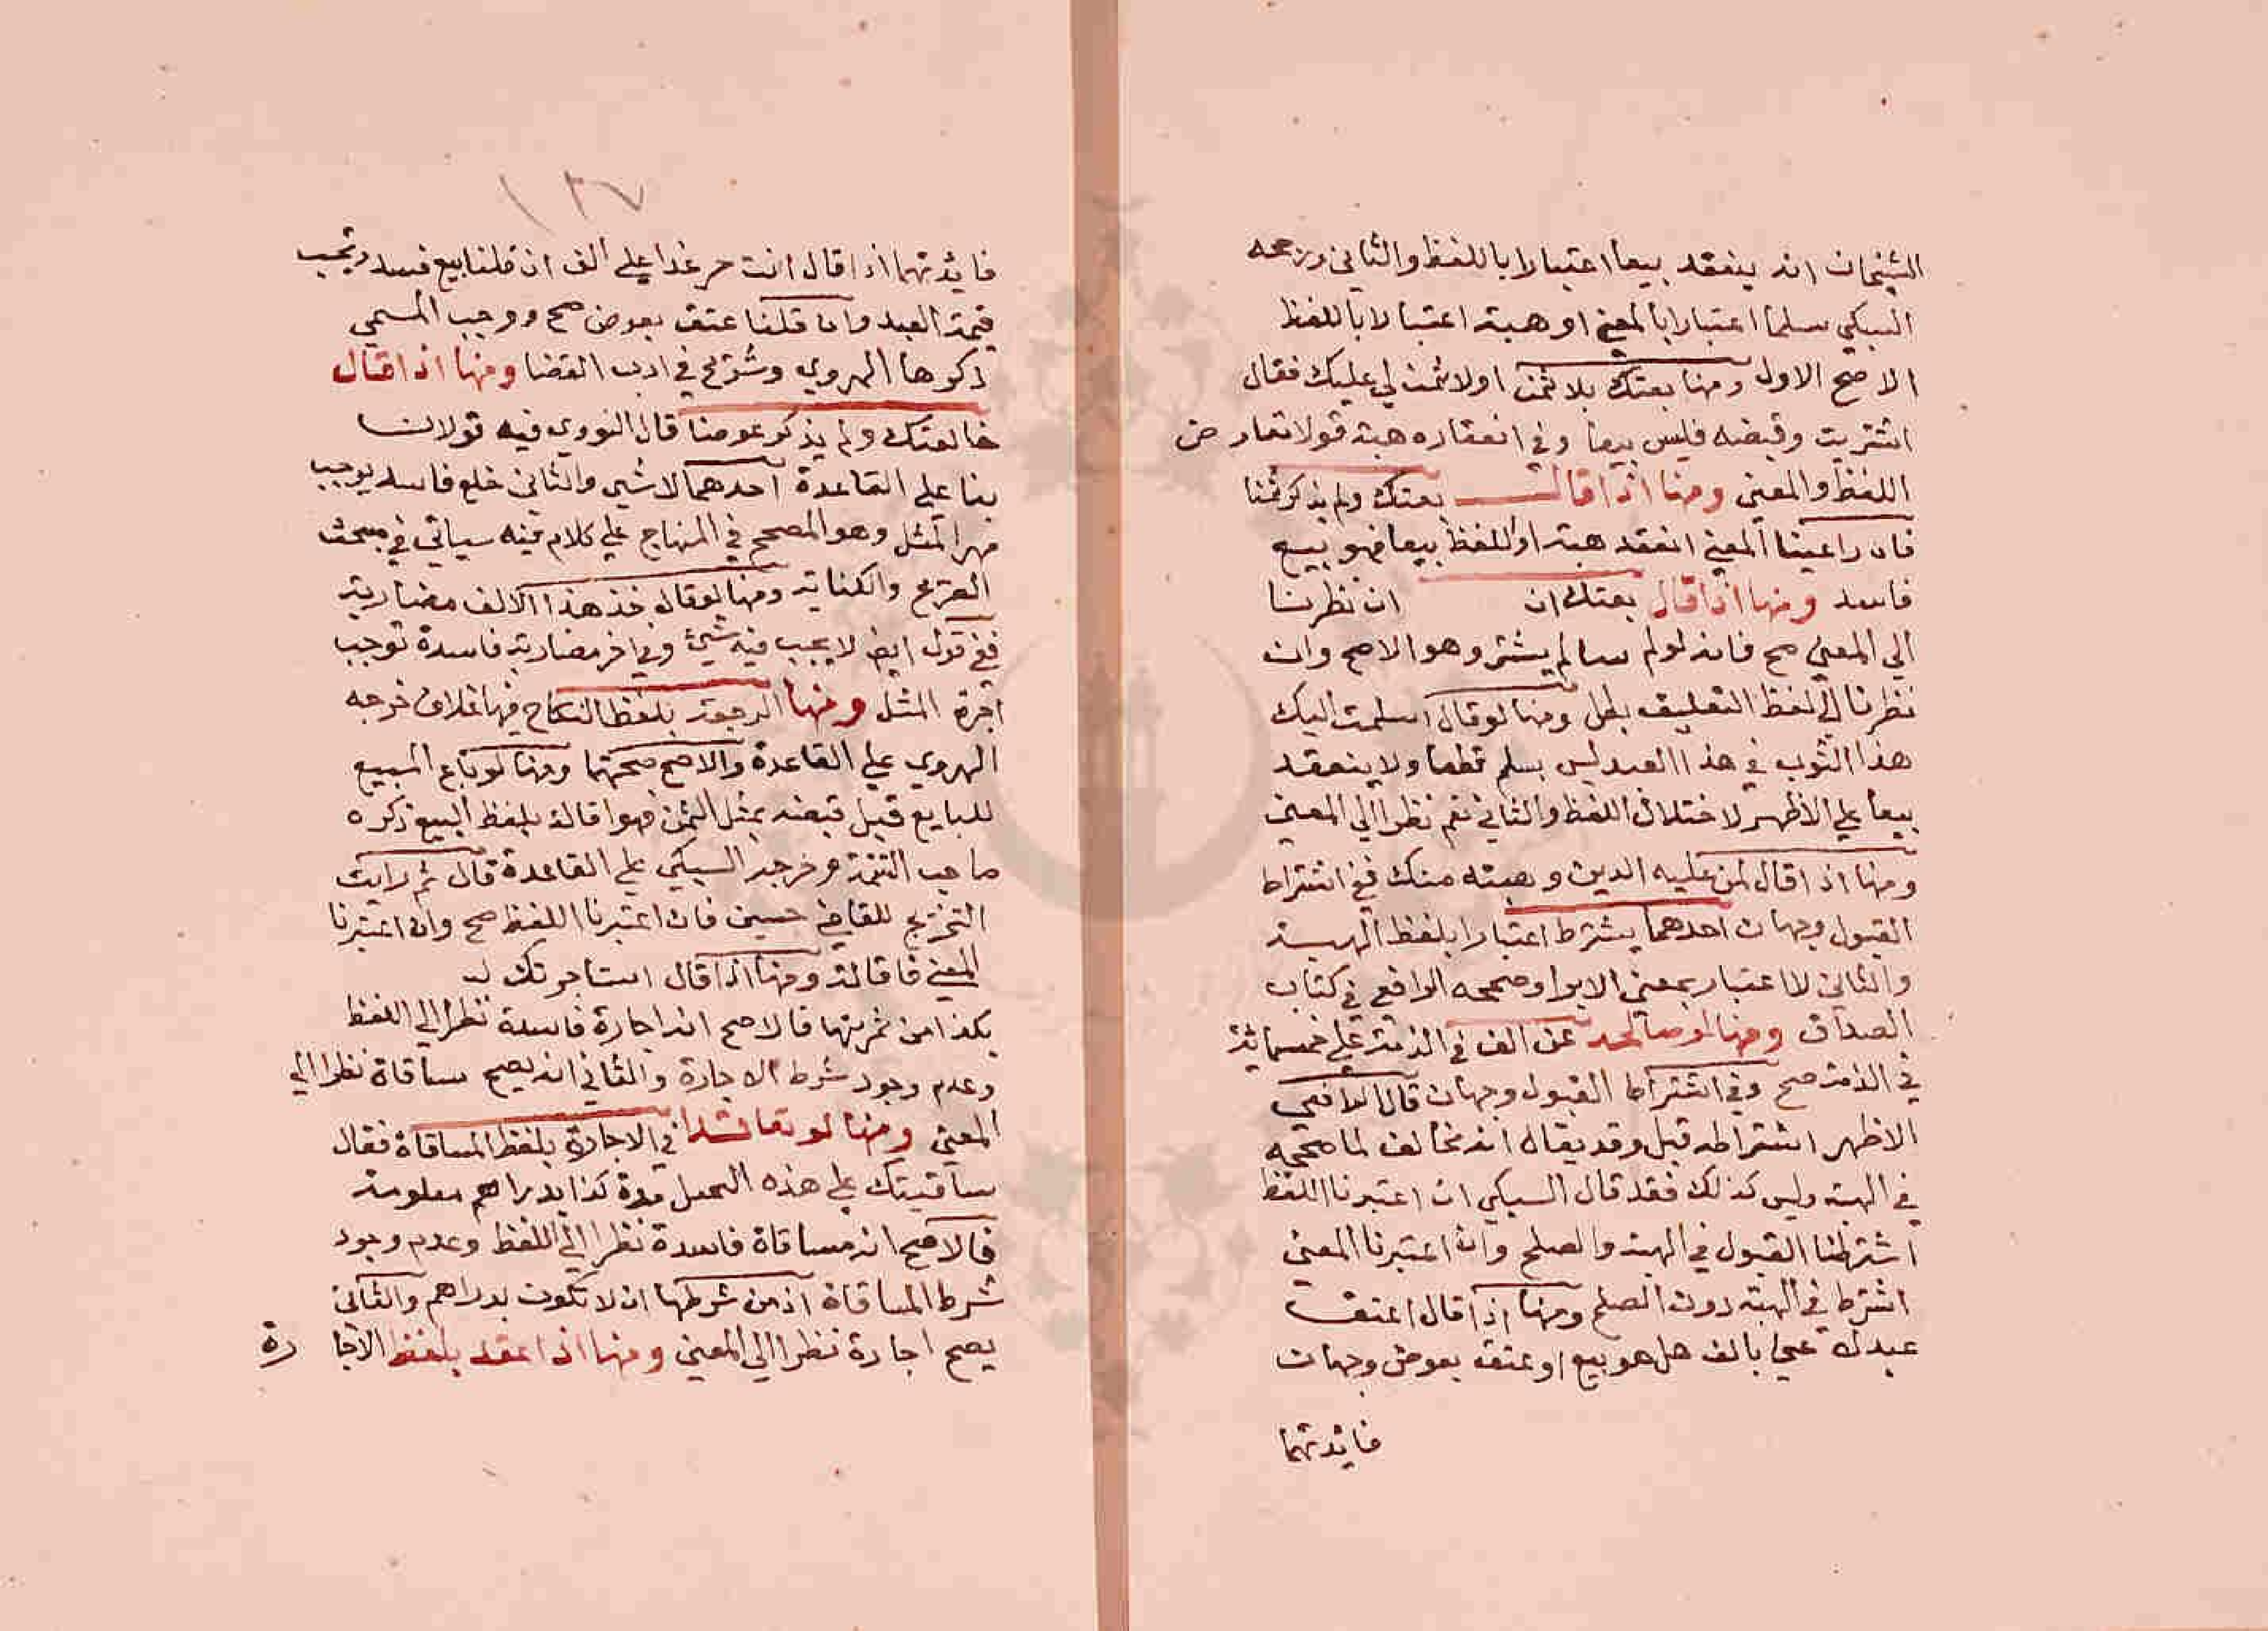 الشيخان انه ينعقد بيعا اعتبارا باللفظ والثاني ورجحه
السبكي سلما اعتبارا بالمعني او هبة اعتبارا باللفظ
الاصح الاول ومنها بعتك بلا ثمن او لا ثمن لي عليك فقال
اشتريت وقبضه فليس بيعا وفي انعقاده هبة قولا تعارض
اللفظ والمعني ومنها اذا قال بعتك ولم يذكر ثمنا
فان راعينا المعني انعقد هبة او اللفظ بيعا فهو بيع
فاسد ومنها اذا قال بعتك ان ان نظرنا
الي المعني صح فانه لو لم سا لم يشتر وهو الاصح وان
نظرنا الي لفظ التعليق بطل ومنها لو قال اسلمت اليك
هذا الثوب في هذا العبد ليس بسلم قطعا ولا ينعقد
بيعا علي الاظهر لاختلال اللفظ والثاني نعم نظرا الي المعني
ومنها اذا قال لمن عليه الدين وهبته منك ففي اشتراط
القبول وجهان احدهما يشترط اعتبارا بلفظ الهبة
والثاني لا اعتبار بمعني الابرا وصححه الرافعي في كتاب
الصداق ومنها لو صالحه عن الف في الذمة علي خمسمائة
في الذمة صح وفي اشتراط القبول وجهان قال الرافعي
الاظهر اشتراطه قيل وقد يقال انه مخالف لما صححه
في الهبة وليس كذلك فقد قال السبكي ان اعتبرنا اللفظ
اشترطنا القبول في الهبة والصلح وان اعتبرنا المعني
اشترط في الهبة دون الصلح ومنها اذا قال اعتق
عبدك عني بالف هل هو بيع او عتق بعوض وجهان
فايدتهما
١٣٧
فايدتهما اذا قال انت حر غدا علي الف ان قلنا بيع فسد وتجب
قيمة العبد وان قلنا عتق بعوض صح ووجب المسمي
ذكرها الهروي وشريح في ادب القضا ومنها اذا قال
خالعتك ولم يذكر عوضا قال النووي فيه قولان
بنا علي القاعدة احدهما لا شي والثاني خلع فاسد يوجب
مهر المثل وهو المصحح في المنهاج علي كلام فيه سياتي في مبحث
الصريح والكناية ومنها لو قال خذ هذا الالف مضاربة
ففي قول ابضا لا يجب فيه شيئ وفي اخر مضاربة فاسدة توجب
اجرة المثل ومنها الرجعة بلفظ النكاح فيها خلاف خرجه
الهروي علي القاعدة والاصح صحتها ومنها لو باع المبيع
للبايع قبل قبضه بمثل الثمن فهو اقالة بلفظ البيع ذكره
صاحب التتمة وخرجه السبكي علي القاعدة قال ثم رايت
التخريج للقاضي حسين فان اعتبرنا اللفظ صح وان اعتبرنا
المعني فاقالة ومنها اذا قال استاجرتك لـ
بكذا من ثمرتها فالاصح انه اجارة فاسدة نظرا الي اللفظ
وعدم وجود شرط الاجارة والثاني انه يصح مساقاة نظرا الي
المعني ومنها لو تعاقدا في الاجارة بلفظ المساقاة فقال
ساقيتك علي هذه النخيل مدة كذا بدراهم معلومة
فالاصح انه مساقاة فاسدة نظرا الي اللفظ وعدم وجود
شرط المساقاة اذ من شرطها ان لا تكون بدراهم والثاني
يصح اجارة نظرا الي المعني ومنها اذا عقد بلفظ الاجا رة